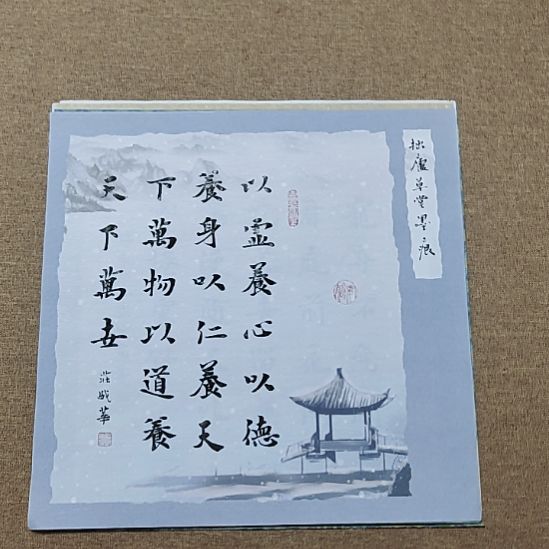 拙廬草堂墨痕
以虛養心以德
養身以仁養天
下萬物以道養
天下萬世